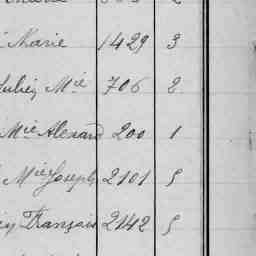 Marie 1429 3
Julien Mie 706 2
Mie Alexand 200 1
Mie Joseph 2101 5
François 2142 5